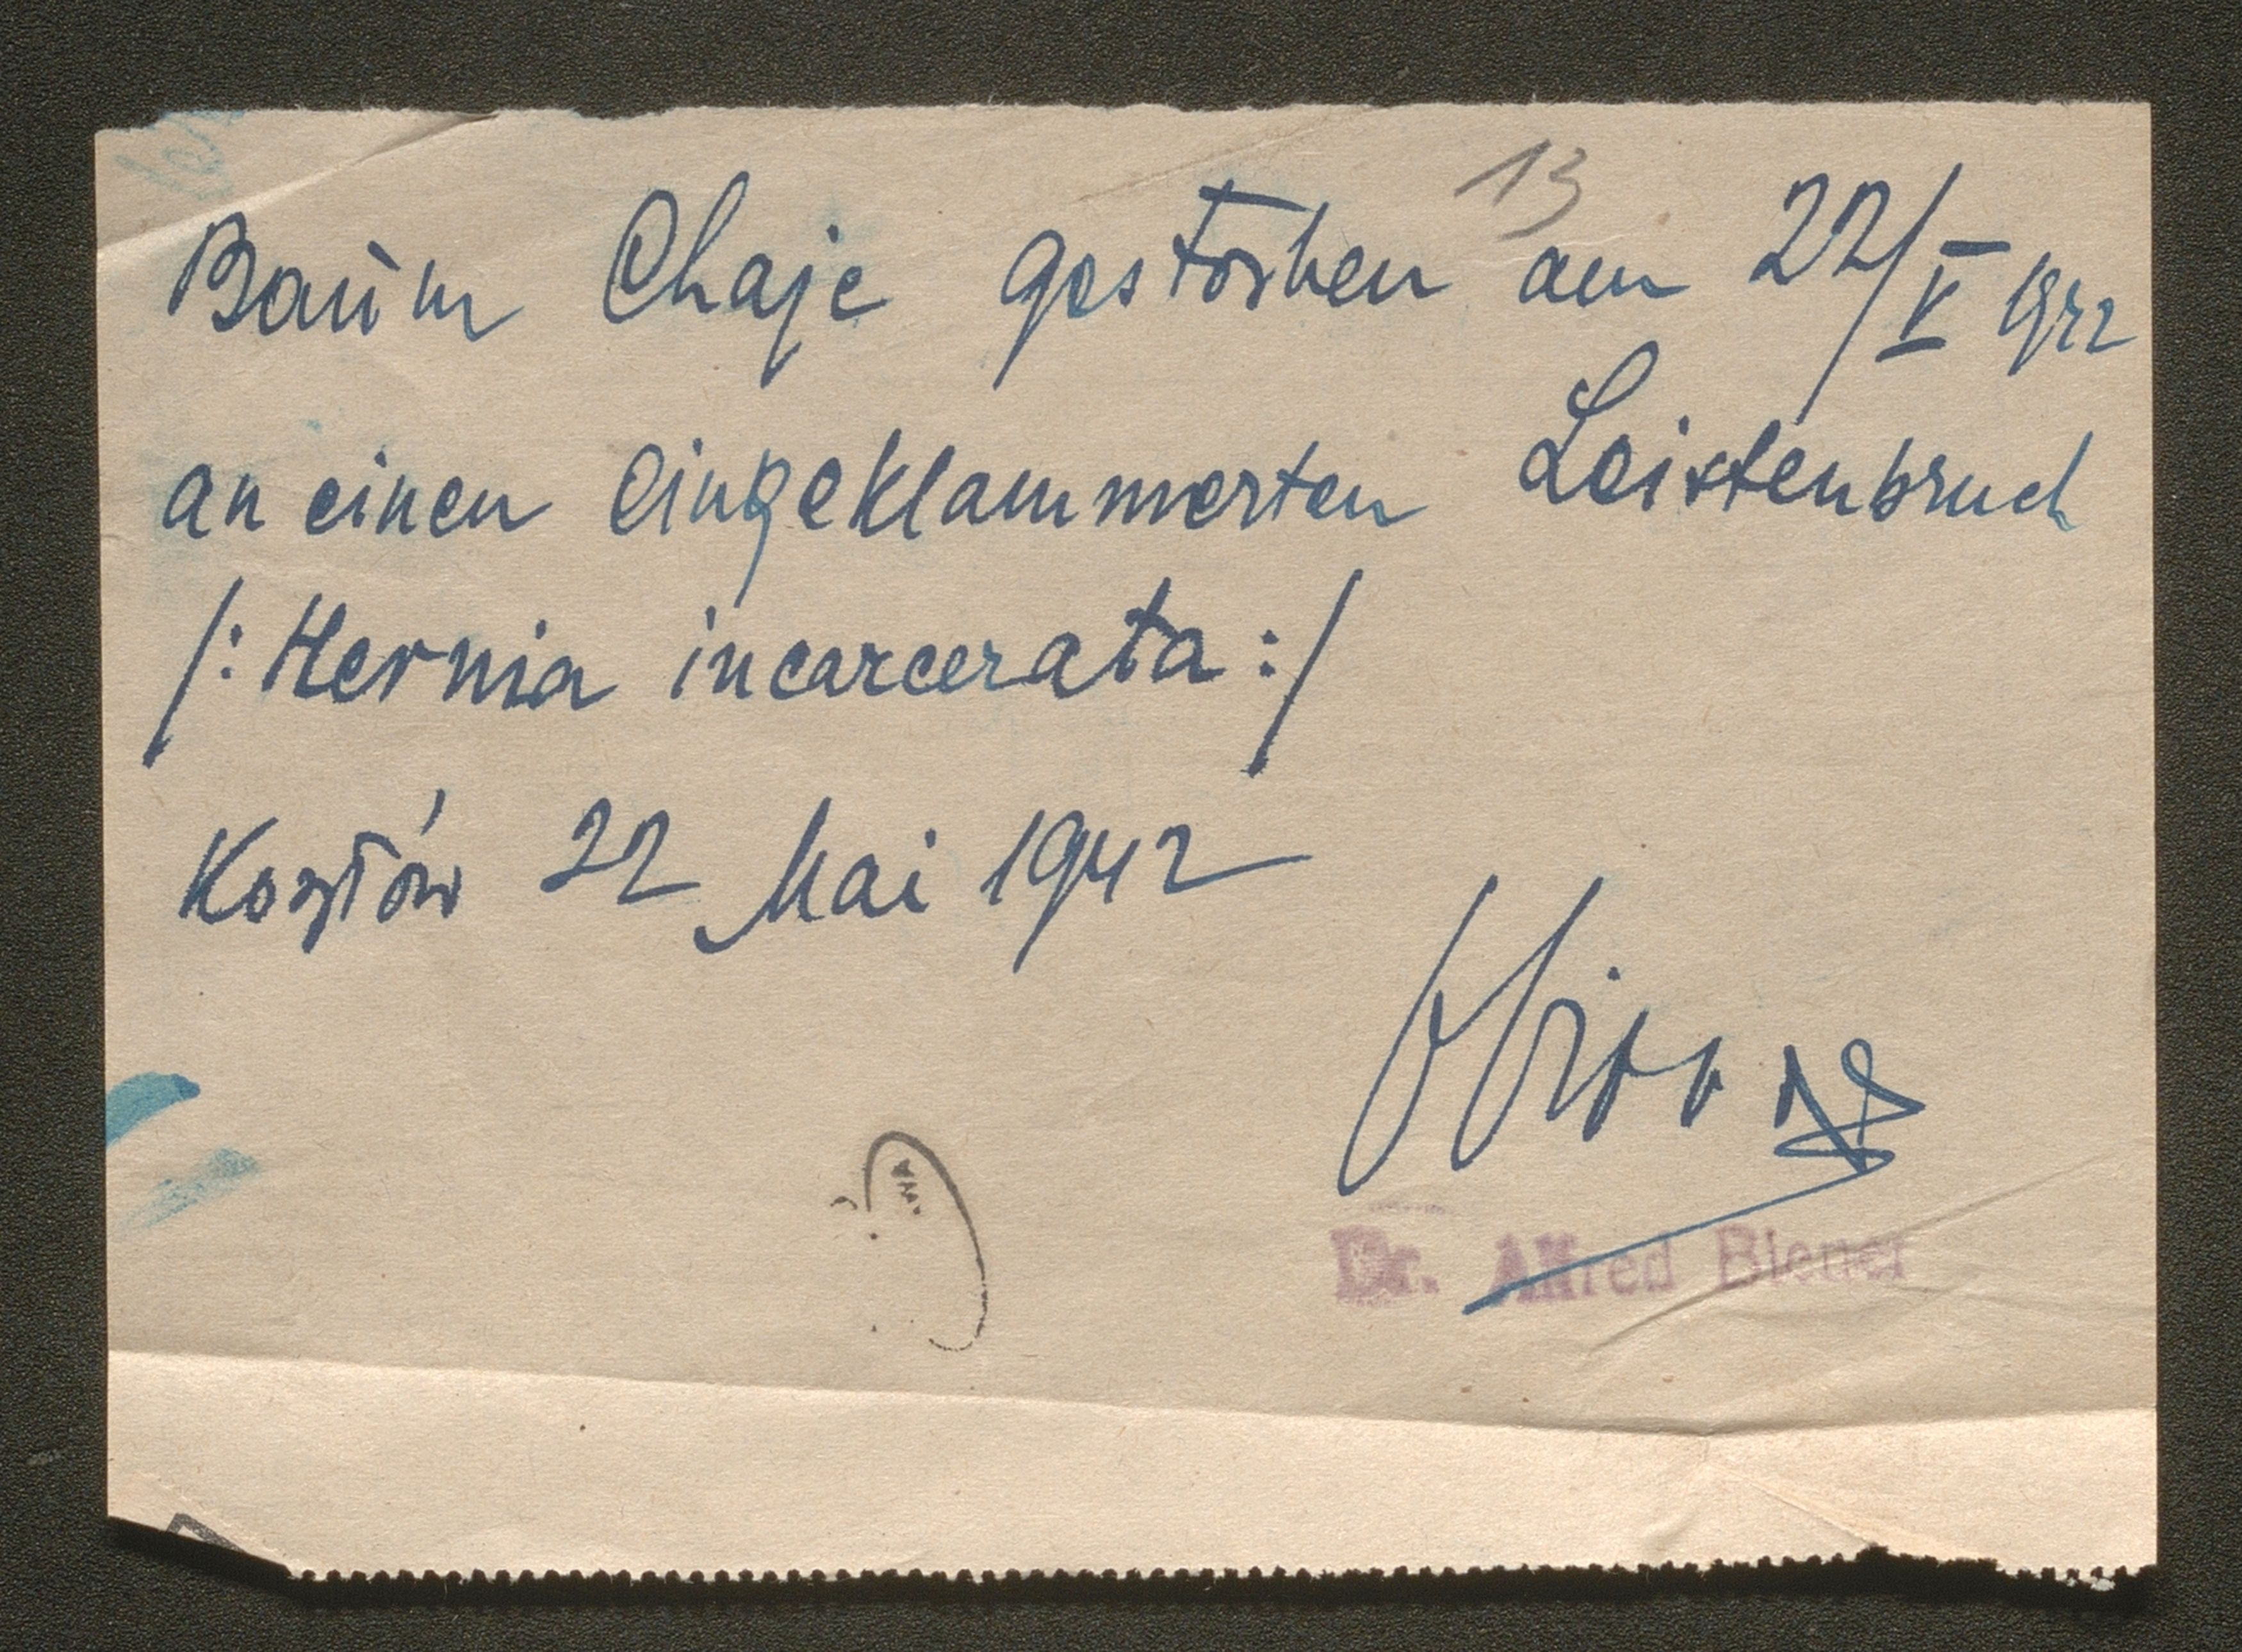 13
Baum Chaje gestorben am 22/V 1942
an einen eingeklammerten Leistenbruch
/: Hernia incarcerata :/
Kozłów 22 Mai 1942
Dr. Alfred Biener